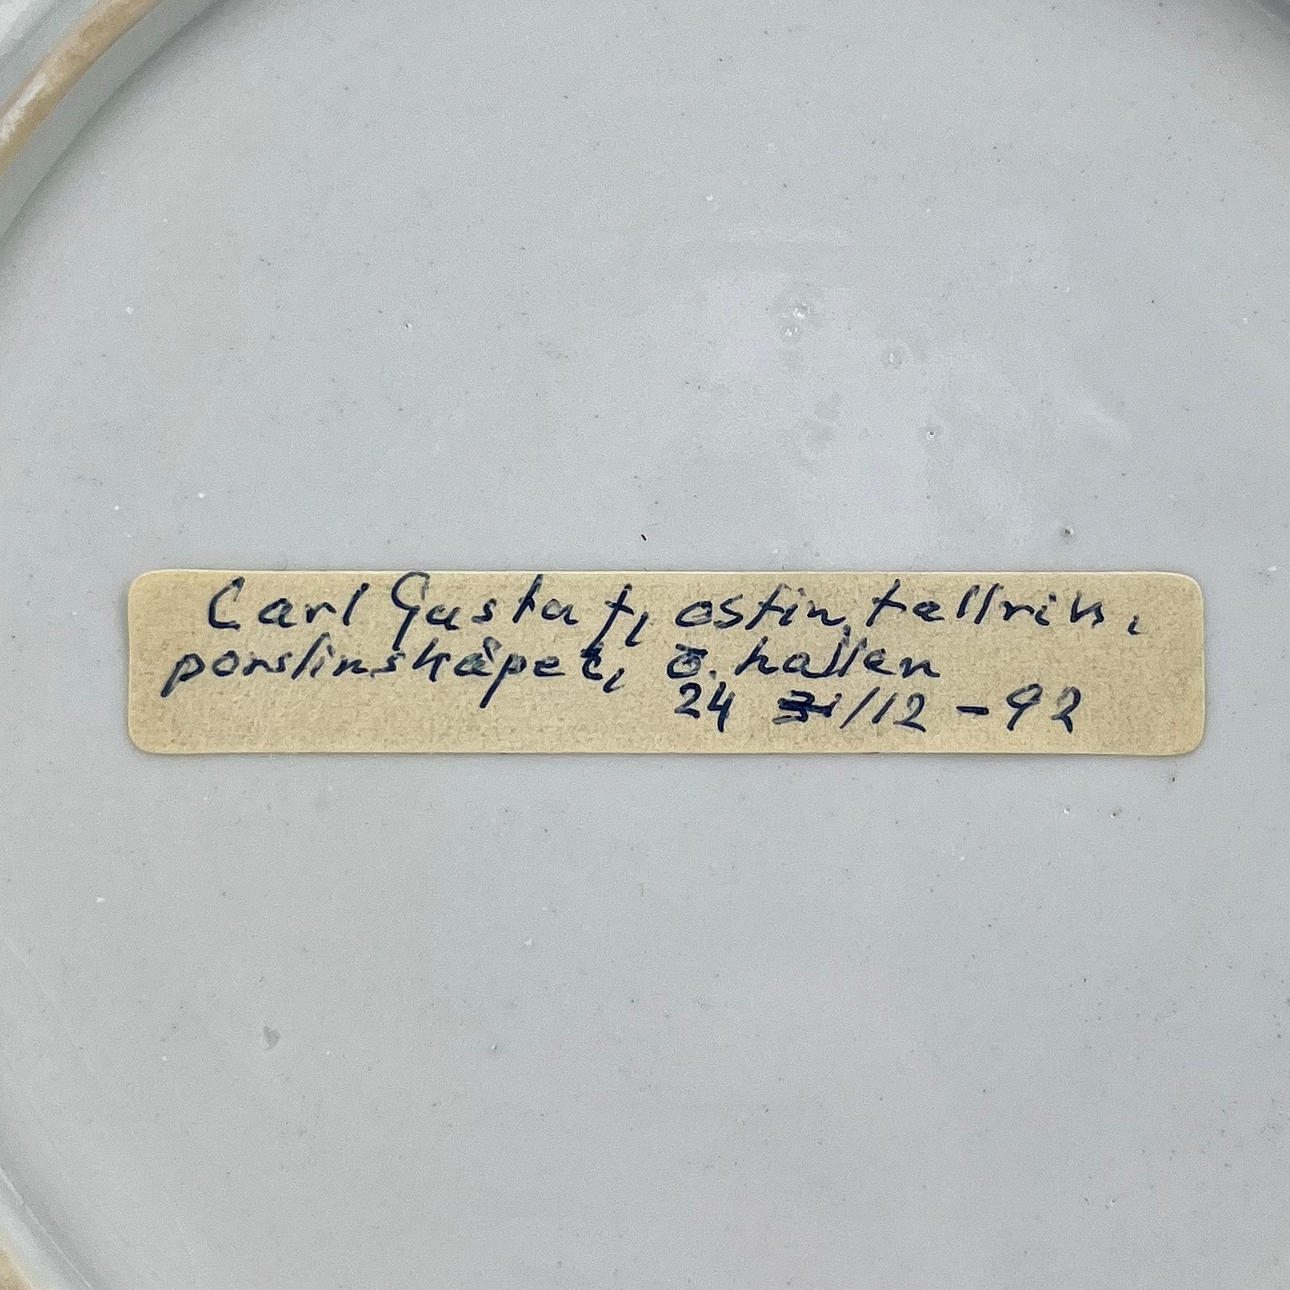 Carl Gustaf, ostin. tallrik,
porslinskåpet, ö. hallen
24 /12 - 92